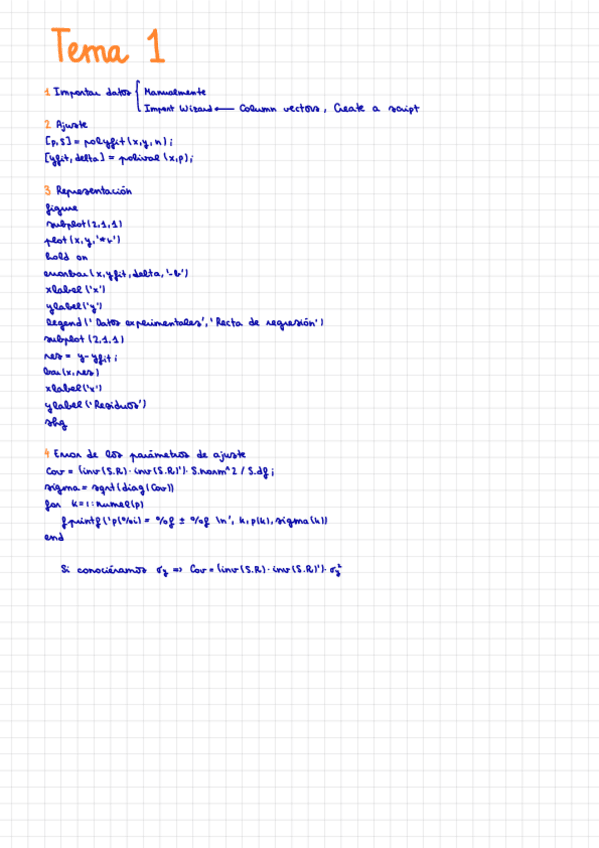 Tema 1
1 Importar datos { Manualmente
Import Wizard ← Column vectors, Create a script
2 Ajuste
[p,S] = polyfit(x,y,n);
[yfit, delta] = polival (x,p);
3 Representación
figure
subplot(2,1,1)
plot(x,y,'*r')
hold on
errorbar(x,yfit,delta,'-b')
xlabel('x')
ylabel('y')
legend('Datos experimentales','Recta de regresión')
subplot (2,1,1)
res = y-yfit;
bar(x,res)
xlabel('x')
ylabel('Residuos')
shg
4 Error de los parámetros de ajuste
Cov = (inv(S.R)·inv(S.R)')·S.norm^2 / S.df;
sigma = sqrt(diag(Cov))
for k=1:numel(p)
fprintf('p(%i) = %f ± %f \n', k, p(k), sigma(k))
end
Si conociéramos σy => Cov = (inv(S.R)·inv(S.R)')·σy²